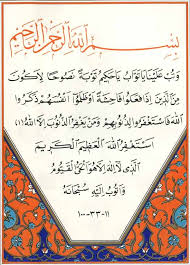 بسم الله الرحمن الرحيم
وتب علينا يا تواب يا حكيم توبة نصوحا لأكون
من الذين إذا فعلوا فاحشة أو ظلموا أنفسهم ذكروا
الله فاستغفروا لذنوبهم ومن يغفر الذنوب إلا الله (١)
استغفر الله العظيم الكريم
الذي لا إله إلا هو الحي القيوم
وأتوب إليه سبحانه
١٠٠-٣٣-١١